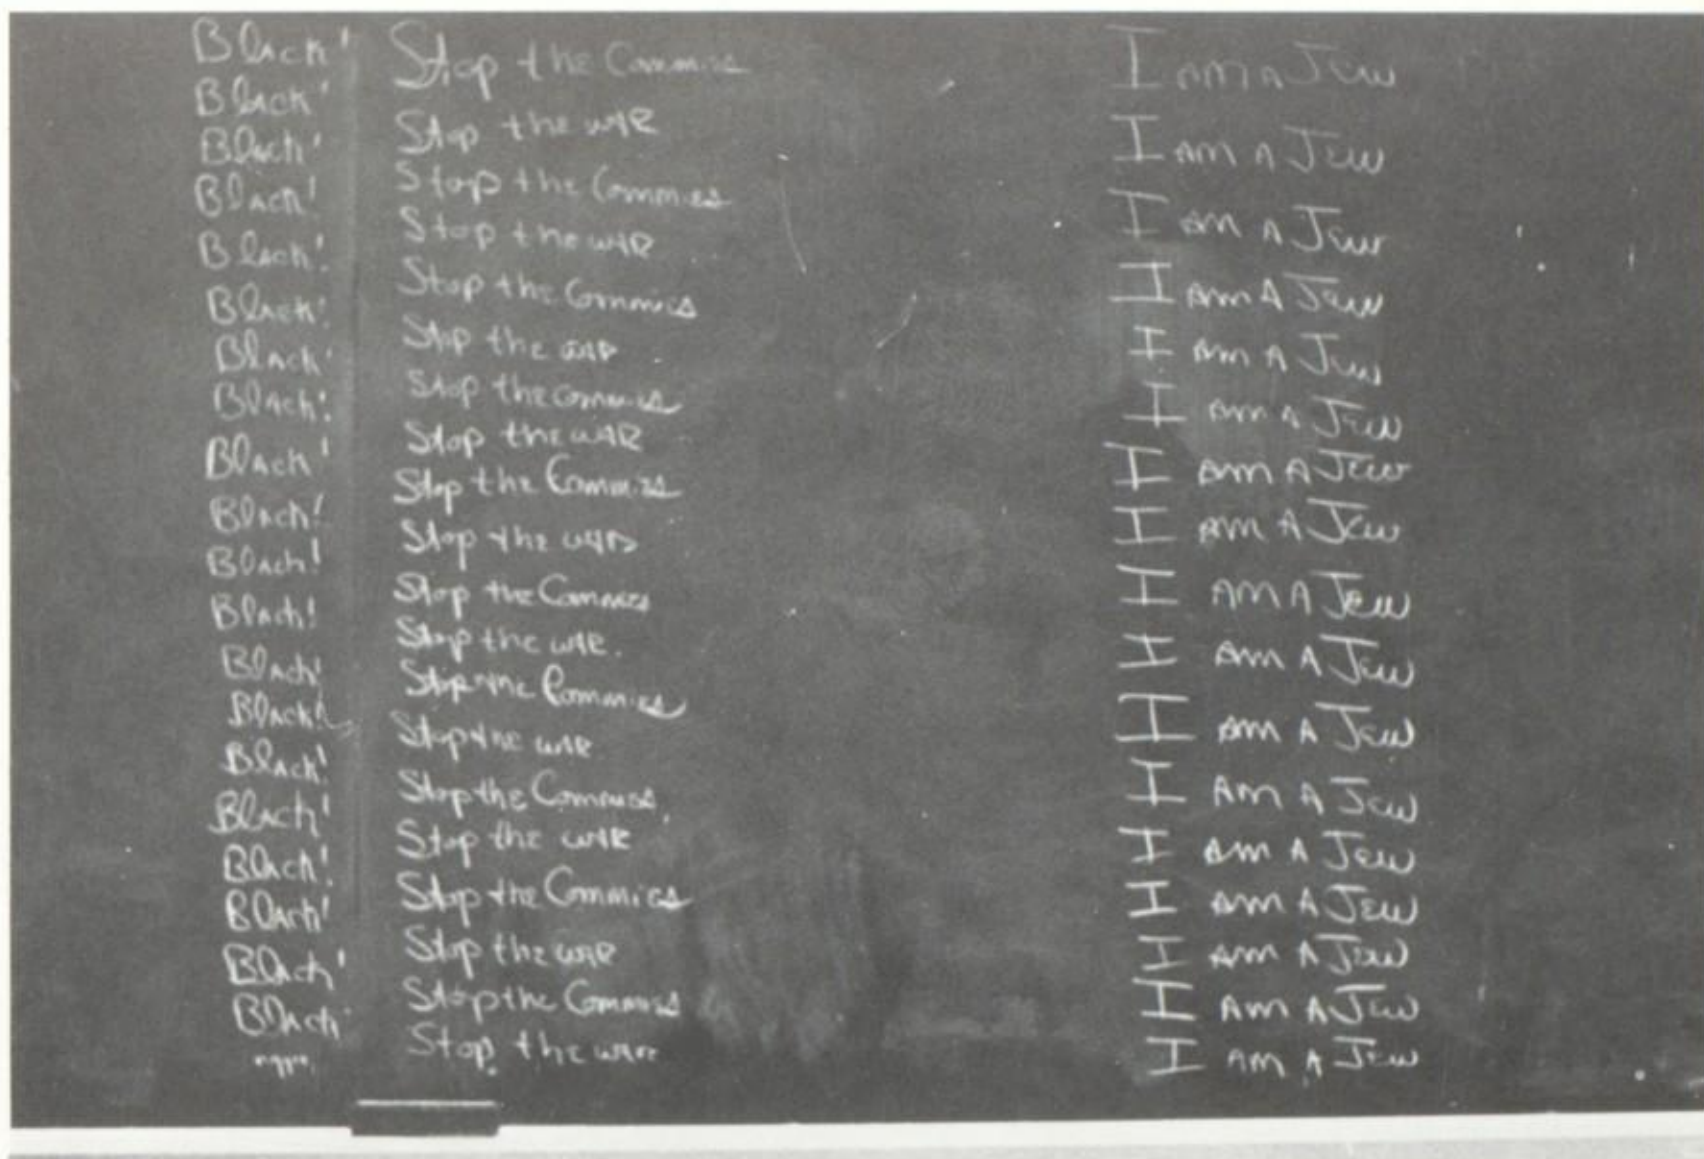 Black!
Black!
Black!
Black!
Black!
Black!
Black!
Black!
Black!
Black!
Black!
Black!
Black!
Black!
Black!
Black!
Black!
Black!
Black!
Black
Stop the Commies
Stop the WAR
Stop the Commies
Stop the WAR
Stop the Commies
Stop the WAR
Stop the Commies
Stop the WAR
Stop the Commies
Stop the WAR
Stop the Commies
Stop the WAR.
Stop the Commies
Stop the WAR
Stop the Commies
Stop the WAR
Stop the Commies
Stop the WAR
Stop the Commies
Stop the WAR
I AM A Jew
I AM A Jew
I AM A Jew
I AM A Jew
I AM A Jew
I AM A Jew
I AM A Jew
I AM A Jew
I AM A Jew
I AM A Jew
I AM A Jew
I AM A Jew
I AM A Jew
I AM A Jew
I AM A Jew
I AM A Jew
I AM A Jew